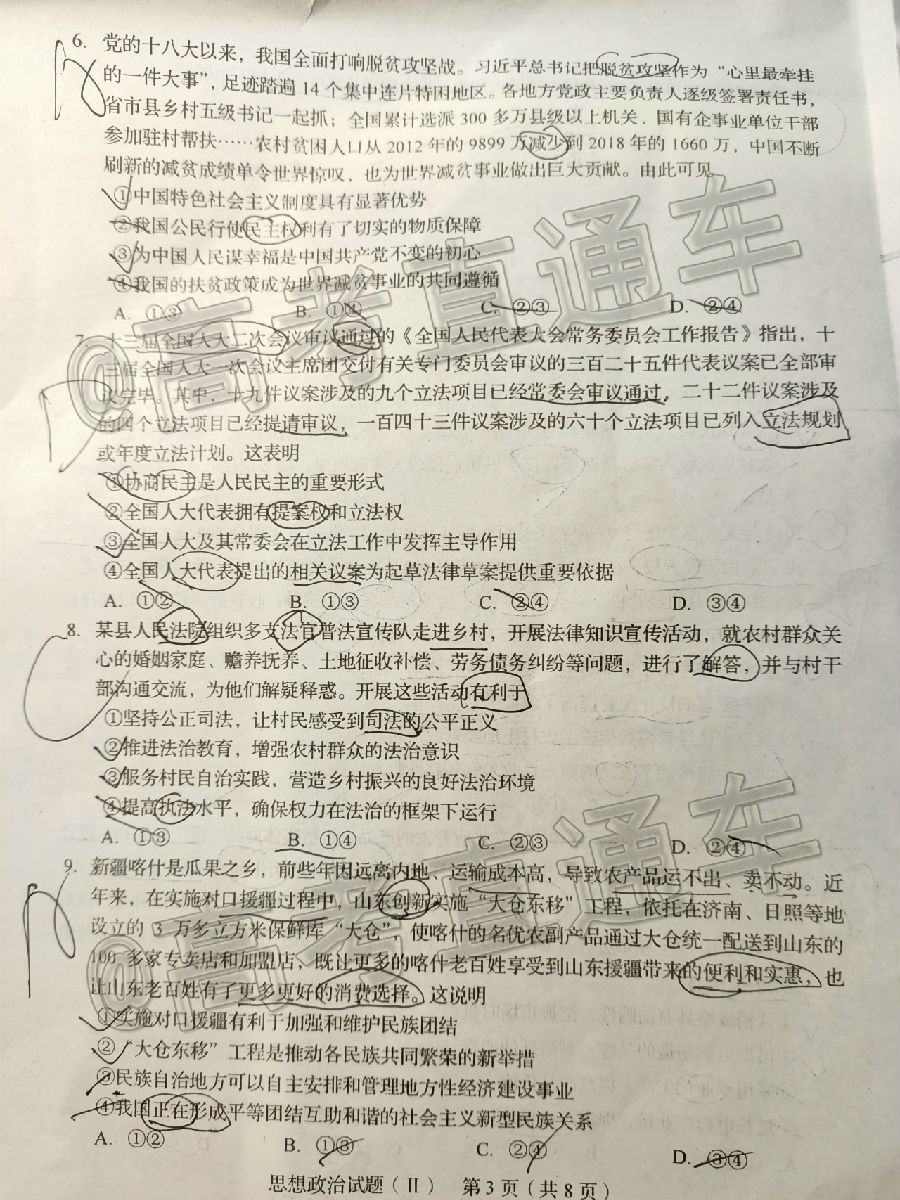 6. 党的十八大以来，我国全面打响脱贫攻坚战。习近平总书记把脱贫攻坚作为“心里最牵挂
的一件大事”，足迹踏遍 14 个集中连片特困地区。各地方党政主要负责人逐级签署责任书，
省市县乡村五级书记一起抓；全国累计选派 300 多万县级以上机关、国有企事业单位干部
参加驻村帮扶……农村贫困人口从 2012 年的 9899 万减少到 2018 年的 1660 万，中国不断
刷新的减贫成绩单令世界惊叹，也为世界减贫事业做出巨大贡献。由此可见
①中国特色社会主义制度具有显著优势
②我国公民行使民主权利有了切实的物质保障
③为中国人民谋幸福是中国共产党不变的初心
④我国的扶贫政策成为世界减贫事业的共同遵循
A. ①③ B. ①④ C. ②③ D. ②④
7. 十三届全国人大二次会议审议通过的《全国人民代表大会常务委员会工作报告》指出，十
三届全国人大一次会议主席团交付有关专门委员会审议的三百二十五件代表议案已全部审
议完毕。其中，十九件议案涉及的九个立法项目已经常委会审议通过，二十二件议案涉及
的四个立法项目已经提请审议，一百四十三件议案涉及的六十个立法项目已列入立法规划
或年度立法计划。这表明
①协商民主是人民民主的重要形式
②全国人大代表拥有提案权和立法权
③全国人大及其常委会在立法工作中发挥主导作用
④全国人大代表提出的相关议案为起草法律草案提供重要依据
A. ①② B. ①③ C. ②④ D. ③④
8. 某县人民法院组织多支法官普法宣传队走进乡村，开展法律知识宣传活动，就农村群众关
心的婚姻家庭、赡养抚养、土地征收补偿、劳务债务纠纷等问题，进行了解答，并与村干
部沟通交流，为他们解疑释惑。开展这些活动有利于
①坚持公正司法，让村民感受到司法的公平正义
②推进法治教育，增强农村群众的法治意识
③服务村民自治实践，营造乡村振兴的良好法治环境
④提高执法水平，确保权力在法治的框架下运行
A. ①③ B. ①④ C. ②③ D. ②④
9. 新疆喀什是瓜果之乡，前些年因远离内地、运输成本高，导致农产品运不出、卖不动。近
年来，在实施对口援疆过程中，山东创新实施“大仓东移”工程，依托在济南、日照等地
设立的 3 万多立方米保鲜库“大仓”，使喀什的名优农副产品通过大仓统一配送到山东的
100 多家专卖店和加盟店，既让更多的喀什老百姓享受到山东援疆带来的便利和实惠，也
让山东老百姓有了更多更好的消费选择。这说明
①实施对口援疆有利于加强和维护民族团结
②“大仓东移”工程是推动各民族共同繁荣的新举措
③民族自治地方可以自主安排和管理地方性经济建设事业
④我国正在形成平等团结互助和谐的社会主义新型民族关系
A. ①② B. ①③ C. ②④ D. ③④
思想政治试题（II） 第 3 页（共 8 页）
@高考直通车
@高考直通车